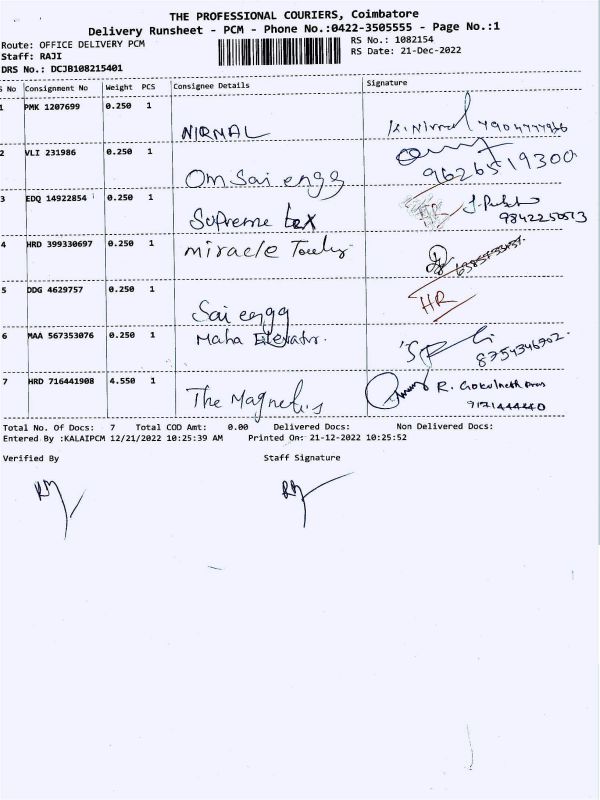 THE PROFESSIONAL COURIERS, Coimbatore
Delivery Runsheet - PCM - Phone No.:0422-3505555 - Page No.:1
Route: OFFICE DELIVERY PCM RS No.: 1082154
Staff: RAJI RS Date: 21-Dec-2022
DRS No.: DCJB108215401
S No Consignment No Weight PCS Consignee Details Signature
1 PMK 1207699 0.250 1 NIRNAL
2 VLI 231986 0.250 1 Om Sai engg 9626519300
3 EDQ 14922854 0.250 1 Supreme tex HR
4 HRD 399330697 0.250 1 miracle Tools
5 DDG 4629757 0.250 1 Sai engg HR
6 MAA 567353076 0.250 1 Maha Elevator. 8754346902.
7 HRD 716441908 4.550 1 The Magnetis R.
Total No. Of Docs: 7 Total COD Amt: 0.00 Delivered Docs: Non Delivered Docs:
Entered By :KALAIPCM 12/21/2022 10:25:39 AM Printed On: 21-12-2022 10:25:52
Verified By Staff Signature